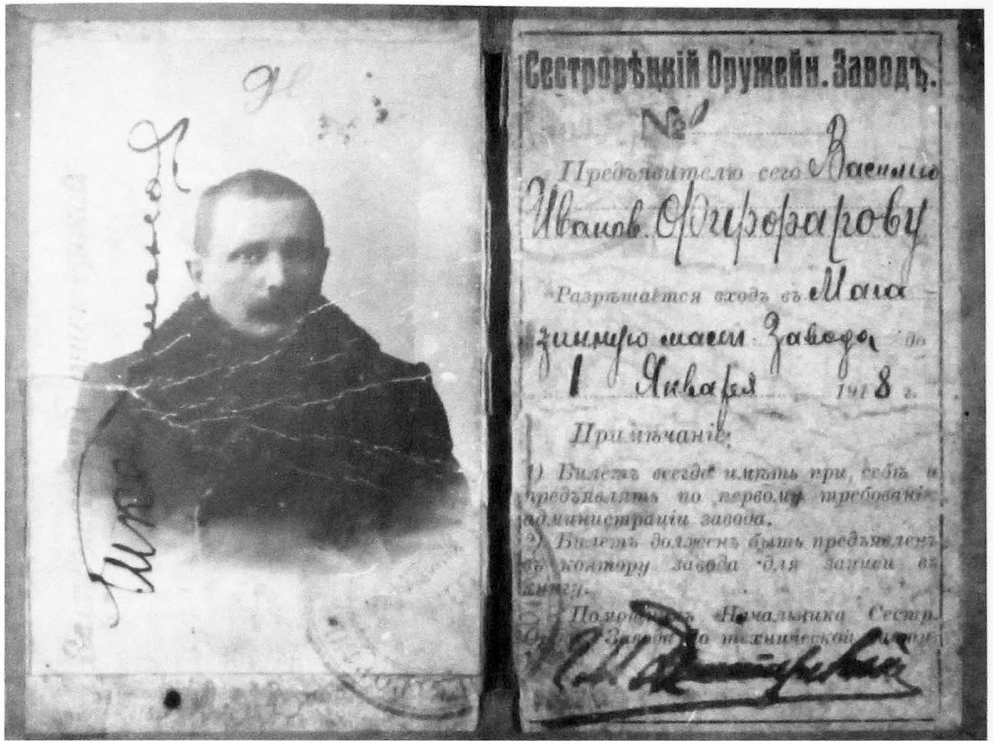 Сестрорѣцкій Оружейн. Заводъ.
№
Предъявителю сего Василію
Иванов. Фирфарову
Разрѣшается входъ въ Мага
зинную маст. Завода до
1 Января 1918 г.
Примѣчаніе:
1) Билетъ всегда имѣть при себѣ и
предъявлять по первому требованію
администраціи завода.
2) Билетъ долженъ быть предъявленъ
въ контору завода для записи въ
книгу.
Помощникъ Начальника Сестр.
Оруж. Завода по технической части